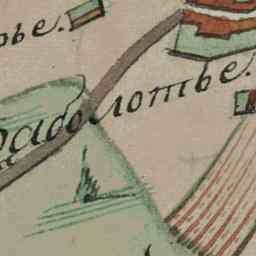 рье.
Заболотье.